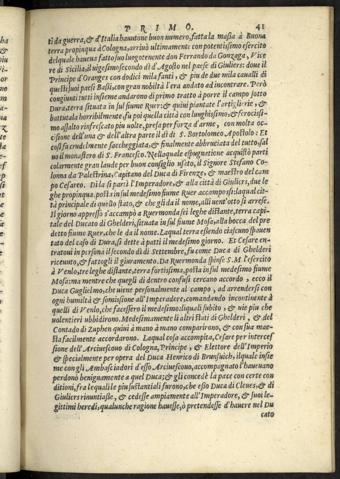 PRIMO. 41
ti da guerra, & d'Italia hauutone buon numero, fatta la massa à Buona
terra propinqua à Cologna, arriuò ultimamente con potentissimo essercito
del quale haueua fatto suo luogotenente don Ferrando da Gonzaga, Vice
re di Sicilia, il uigesimo secondo dì d'Agosto nel paese di Giuliers: doue il
Principe d'Oranges con dodici mila fanti, & piu de due mila caualli di
questi suoi paesi Bassi, con gran nobiltà l'era andato ad incontrare. Però
congiunti tutti insieme andarono di primo tratto à porre il campo sotto
Dura, terra situata in sul fiume Ruer: & quiui piantate l'artiglierie, &
battutala horribilmente, fu poi quella città con lunghissimo, & ferocissi-
mo assalto rinfrescato piu uolte, presa per forza d'arme, con molta oc-
cisione dell'una & dell'altra parte il dì di S. Bortolomeo Apostolo: Et
così fu crudelmente saccheggiata, & finalmente abbruciata del tutto, sal
uo il monastero di S. Francesco. Nella quale espugnatione acquistò parti
colarmente gran laude per buon consiglio usato, il Signore Stefano Co-
lonna da Palestrina, Capitano del Duca di Firenze, & maestro del cam
po Cesareo. Di là si parti l'Imperadore, & alla città di Giuliers, due le
ghe propinqua, posta in sul medesimo fiume Ruer accamposi: laqual cit-
tà principale di quello stato, & che gli da il nome, alli uent'otto si arrese.
Il giorno appresso s'accampò a Ruermonda sei leghe distante, terra capi-
tale del Ducato di Ghelderi, situata in sul fiume Mosa, alla bocca del pre
detto fiume Ruer, che le da il nome. Laqual terra essendo ciascuno spauen-
tato del caso di Dura, si dette à patti il medesimo giorno. Et Cesare en-
tratoui in persona il secondo dì di Settembre, fu come Duca di Ghelderi
riceuuto, & fattogli il giuramento. Da Ruermonda spinse S. M. l'essercito
à Venlo, tre leghe distante, terra fortissima, posta in sul medesimo fiume
Mosa: ma mentre che quegli di dentro confusi cercano accordo, ecco il
Duca Guglielmo, che uiene personalmente al campo, ad arrendersi con
ogni humiltà & somissione all'Imperadore, comandando incontinente à
quelli di Venlo, che facessero il medesimo: liquali subito, & uie piu che
uolentieri ubbidirono. Medesimamente li altri stati di Ghelderi, & del
Contado di Zuphen quiui à mano à mano comparirono, & con sua mae-
sta facilmente accordarono. Laqual cosa accompita, Cesare per interces-
sione dell'Arciuescouo di Cologna, Principe, & Elettore dell'Imperio
& spetialmente per opera del Duca Henrico di Brunsuich, il quale insie
me con gli Ambasciadori d'esso Arciuescouo, accompagnato l'haueuano
perdonò benignamente a quel Duca: & gli concedè la pace con certe con
ditioni, fra lequali le piu sustantiali furono, che esso Duca di Cleues, & di
Giuliers rinuntiasse, & cedesse ampiamente all'Imperadore, & suoi le-
gittimi heredi, qualunche ragione hauesse, ò pretendesse d'hauere nel Du
cato